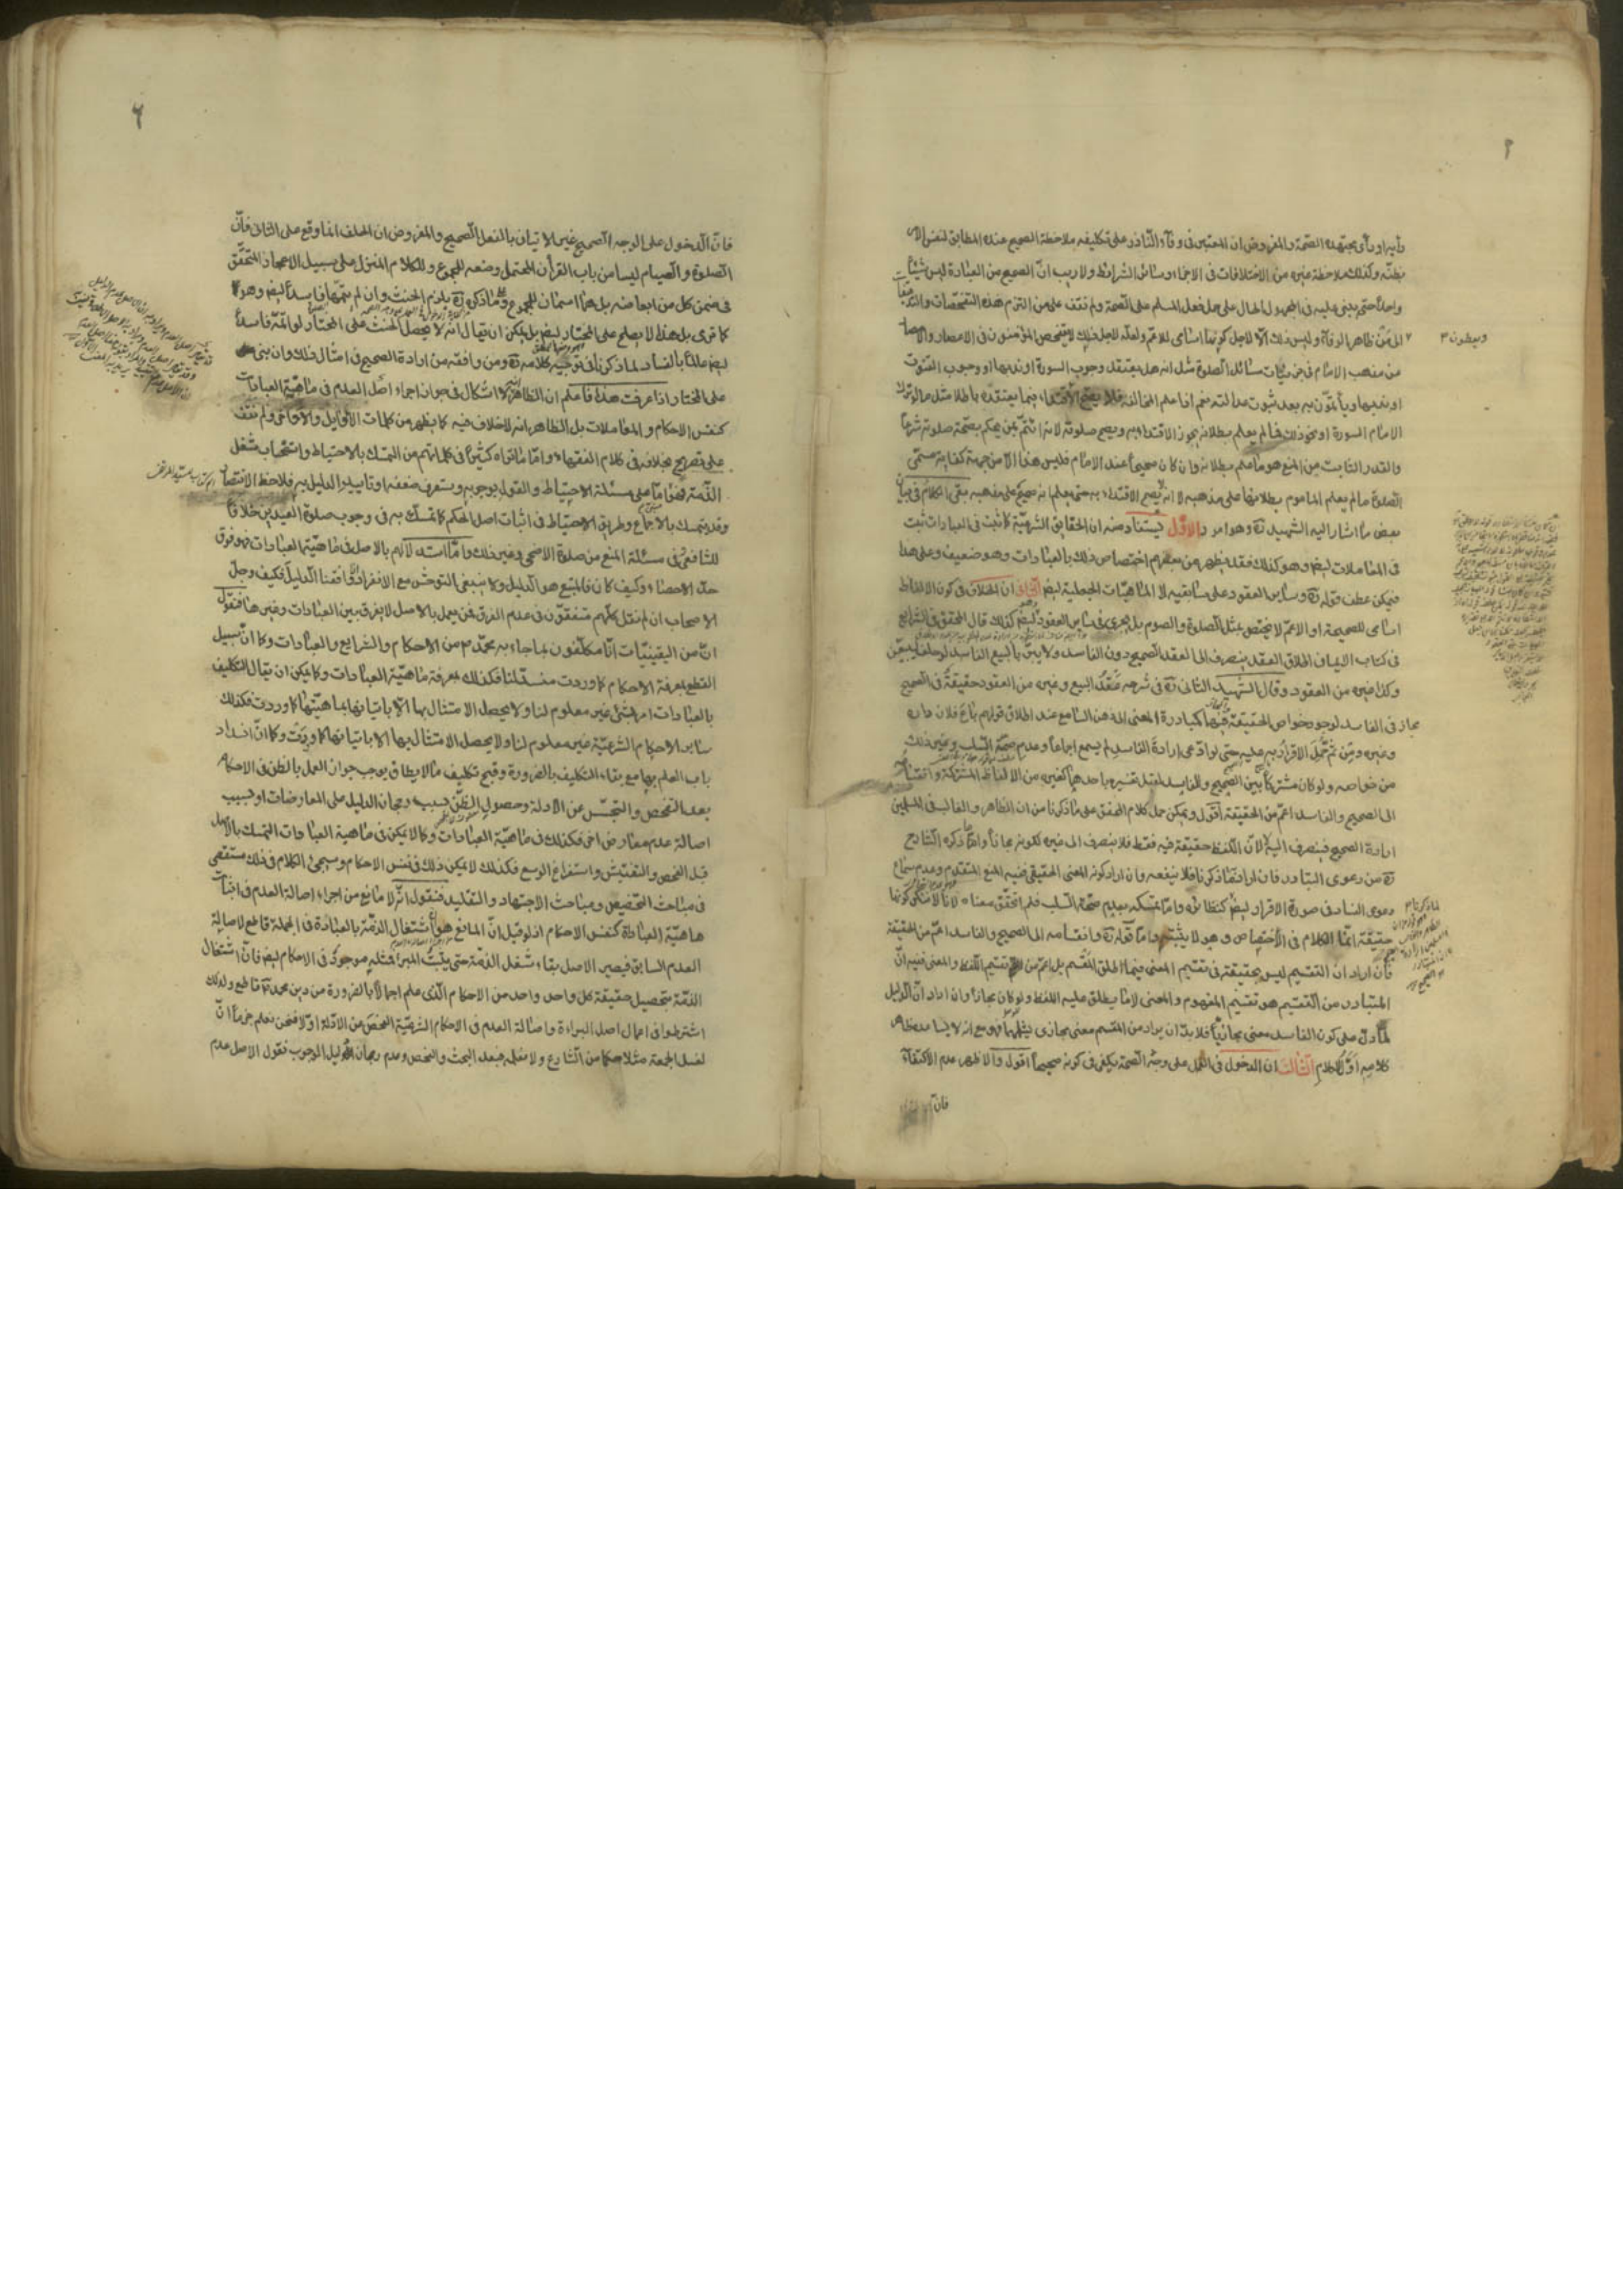 رأيه او رأى مجتهده الصحة والمفروض ان المعتبر فى وفاء الناذر على تكليفه ملاحظة الصحيح عنده المطابق لنفس الامر
بظنه وكذلك ملاحظة غيره من الاختلافات فى الاجزاء وسائر الشرائط ولا ريب ان الصحيح من العبادة ليس شيئا
واحدا حتى يبنى عليه فى المجهول الحال على حمل فعل المسلم على الصحة ولم نقف على من التزم هذه التفحصات والتدقيقات
الى من ظاهره الوفاء وليس ذلك الا لاجل كونها اسامى للاعم ولعله لاجل ذلك لا يتفحص المؤمنون فى الاعصار والامصار
من مذهب الامام فى جزئيات مسائل الصلوة مثل انه هل يعتقد وجوب السورة او ندبها او وجوب القنوت
او ندبها ويأتمون به بعد ثبوت عدالته نعم اذا علم المخالفة فلا يصح الاقتداء فيما يعتقده باطلا مثل ما لو ترك
الامام السورة او نحو ذلك فما لم يعلم بطلانه يجوز الاقتداء به ويصح صلوته لانه ائتم بمن يحكم بصحة صلوته شرعا
والقدر الثابت من المنع هو ما علم بطلانه وان كان صحيحا عند الامام فليس هذا الا من جهة كفاية مسمى
الصلوة ما لم يعلم الماموم بطلانها على مذهبه لا انه لا يصح الاقتداء به حتى يعلم انه صحيح على مذهبه بقى الكلام فى بيان
بعض ما اشار اليه الشهيد ره وهو امور الاول يستفاد منه ان الحقايق الشرعية كما ثبت فى العبادات ثبت
فى المعاملات ايضا وهو كذلك فقد يظهر من بعضهم اختصاص ذلك بالعبادات وهو ضعيف وعلى هذا
فيمكن عطف قوله ره وسائر العقود على سابقيه لا الماهيات الجعلية ايضا الثانى ان الخلاف فى كون الالفاظ
اسامى للصحيحة او الاعم لا يختص بمثل الصلوة والصوم بل يجرى فى سائر العقود ايضا كذلك قال المحقق فى الشرايع
فى كتاب الايمان اطلاق العقد ينصرف الى العقد الصحيح دون الفاسد ولا يبر بالبيع الفاسد لو حلف ليبيعن
وكذا غيره من العقود وقال الشهيد الثانى ره فى شرحه عقد البيع وغيره من العقود حقيقة فى الصحيح
مجاز فى الفاسد لوجود خواص الحقيقة فيهما كمبادرة المعنى الى ذهن السامع عند اطلاق قولهم باع فلان داره
وغيره ومن ثم حمل الاقرار به عليه حتى لو ادعى ارادة الفاسد لم يسمع اجماعا وعدم صحة السلب وغير ذلك
من خواصه ولو كان مشتركا بين الصحيح والفاسد لقبل تفسيره باحدهما كغيره من الالفاظ المشتركة وانقسامه
الى الصحيح والفاسد اعم من الحقيقة اقول ويمكن حمل كلام المحقق على ما ذكرنا من ان الظاهر والغالب فى المسلمين
ارادة الصحيح فينصرف اليه لا لان اللفظ حقيقة فيه فقط فلا ينصرف الى غيره لكونه مجازا واما ما ذكره الشارح
ره من دعوى التبادر فان اراد ما ذكرنا فلا ينفعه وان اراد كونه المعنى الحقيقى ففيه المنع المتقدم وعدم سماع
دعوى الفساد فى صورة الاقرار ايضا كنظائره واما تمسكه بعدم صحة السلب فلم اتحقق معناه لانا لا ننكر كونها
حقيقة انما الكلام فى الاختصاص وهو لا يثبته واما قوله ره وانقسامه الى الصحيح والفاسد اعم من الحقيقة
فان اراد ان التقسيم ليس بحقيقة فى تقسيم المعنى فيما اطلق المقسم بل اعم من تقسيم اللفظ والمعنى ففيه ان
المتبادر من التقسيم هو تقسيم المفهوم والمعنى لا ما يطلق عليه اللفظ ولو كان مجازا وان اراد ان الدليل
لما دل على كون الفاسد معنى مجازيا فلا بد ان يراد من المقسم معنى مجازى يشملهما فهو مع انه لا يساعده ظاهر
كلامه اول الكلام الثالث ان الدخول فى العمل على وجه الصحة يكفى فى كونه صحيحا اقول والاظهر عدم الاكتفاء
فان
٦
فان الدخول على الوجه الصحيح غير الاتيان بالفعل الصحيح والمفروض ان الحلف انما وقع على الثانى فان
الصلوة والصيام ليسا من باب القرآن المحتمل وضعه للمجموع وللكلام المنزل على سبيل الاعجاز المتحقق
فى ضمن كل من ابعاضه بل هما اسمان للمجموع وما ذكره ره يلزم الحنث وان لم يتمها فاسدا ايضا وهو كما
كما ترى بل هذا لا يصلح على المختار ايضا بل يمكن ان يقال انه لا يحصل الحنث على المختار لو اتمه فاسدا
ايضا عالما بالفساد لما ذكرنا فى توجيه كلامه ره ومن وافقه من ارادة الصحيح فى امثال ذلك وان بنى
على المختار اذا عرفت هذا فاعلم ان الظاهر انه لا اشكال فى جواز اجراء اصل العدم فى ماهية العبادات
كنفس الاحكام والمعاملات بل الظاهر انه لا خلاف فيه كما يظهر من كلمات الاوايل والاواخر ولم نقف
على تصريح بخلافه فى كلام الفقهاء واما ما تراه كثيرا فى كلماتهم من التمسك بالاحتياط واستصحاب شغل
الذمة فهو اما على مسئلة الاحتياط والقول بوجوبه وستعرف ضعفه او تاييد الدليل به فلاحظ الانتصار
وقد يتمسك بالاجماع وطريق الاحتياط فى اثبات اصل الحكم كما تمسك به فى وجوب صلوة العيدين خلافا
للشافعى فى مسئلة المنع من صلوة الاضحى وغير ذلك واما استدلالهم بالاصل فى ماهية العبادات فهو فوق
حد الاحصاء وكيف كان فالمتبع هو الدليل ولا ينبغى التوحش مع الانفراد اذا وافقنا الدليل فكيف وجل
الاصحاب ان لم نقل كلهم متفقون فى عدم الفرق فمن يعمل بالاصل لا يفرق بين العبادات وغيرها فنقول
ان من اليقينيات انا مكلفون بما جاء به محمد ص من الاحكام والشرايع والعبادات وكما ان سبيل
القطع بمعرفة الاحكام كما وردت منسد لنا فكذلك معرفة ماهية العبادات وكما يمكن ان يقال التكليف
بالعبادات امر بشىء غير معلوم لنا ولا يحصل الامتثال بها الا باتيانها بماهيتها كما وردت فكذلك
ساير الاحكام الشرعية غير معلوم لنا ولا يحصل الامتثال بها الا باتيانها كما وردت وكما ان انسداد
باب العلم بها مع بقاء التكليف بالضرورة وقبح تكليف ما لا يطاق يوجب جواز العمل بالظن فى الاحكام
بعد التفحص والتجسس عن الادلة وحصول الظن بسبب رجحان الدليل على المعارضات او بسبب
اصالة عدم معارض اخر فكذلك فى ماهية العبادات وكما لا يمكن فى ماهية العبادات التمسك بالاصل
قبل الفحص والتفتيش واستفراغ الوسع فكذلك لا يمكن ذلك فى نفس الاحكام وسيجىء الكلام فى ذلك مستقصى
فى مباحث التخصيص ومباحث الاجتهاد والتقليد فنقول انه لا مانع من اجراء اصالة العدم فى اثبات
ماهية العبادة كنفس الاحكام اذ لو قيل ان المانع هو اشتغال الذمة بالعبادة فى الجملة قاطع لاصالة
العدم السابق فيصير الاصل بقاء شغل الذمة حتى يثبت المبرء فمثله موجود فى الاحكام ايضا فان اشتغال
الذمة بتحصيل حقيقة كل واحد واحد من الاحكام الذى علم اجمالا بالضرورة من دين محمد ص قاطع ولذلك
اشترطوا فى اعمال اصل البراءة واصالة العدم فى الاحكام الشرعية الفحص عن الادلة اولا فنحن نعلم جزما ان
لغسل الجمعة مثلا حكما من الشارع ولا نعلمه فبعد البحث والفحص وعدم رجحان دليل الوجوب نقول الاصل عدم